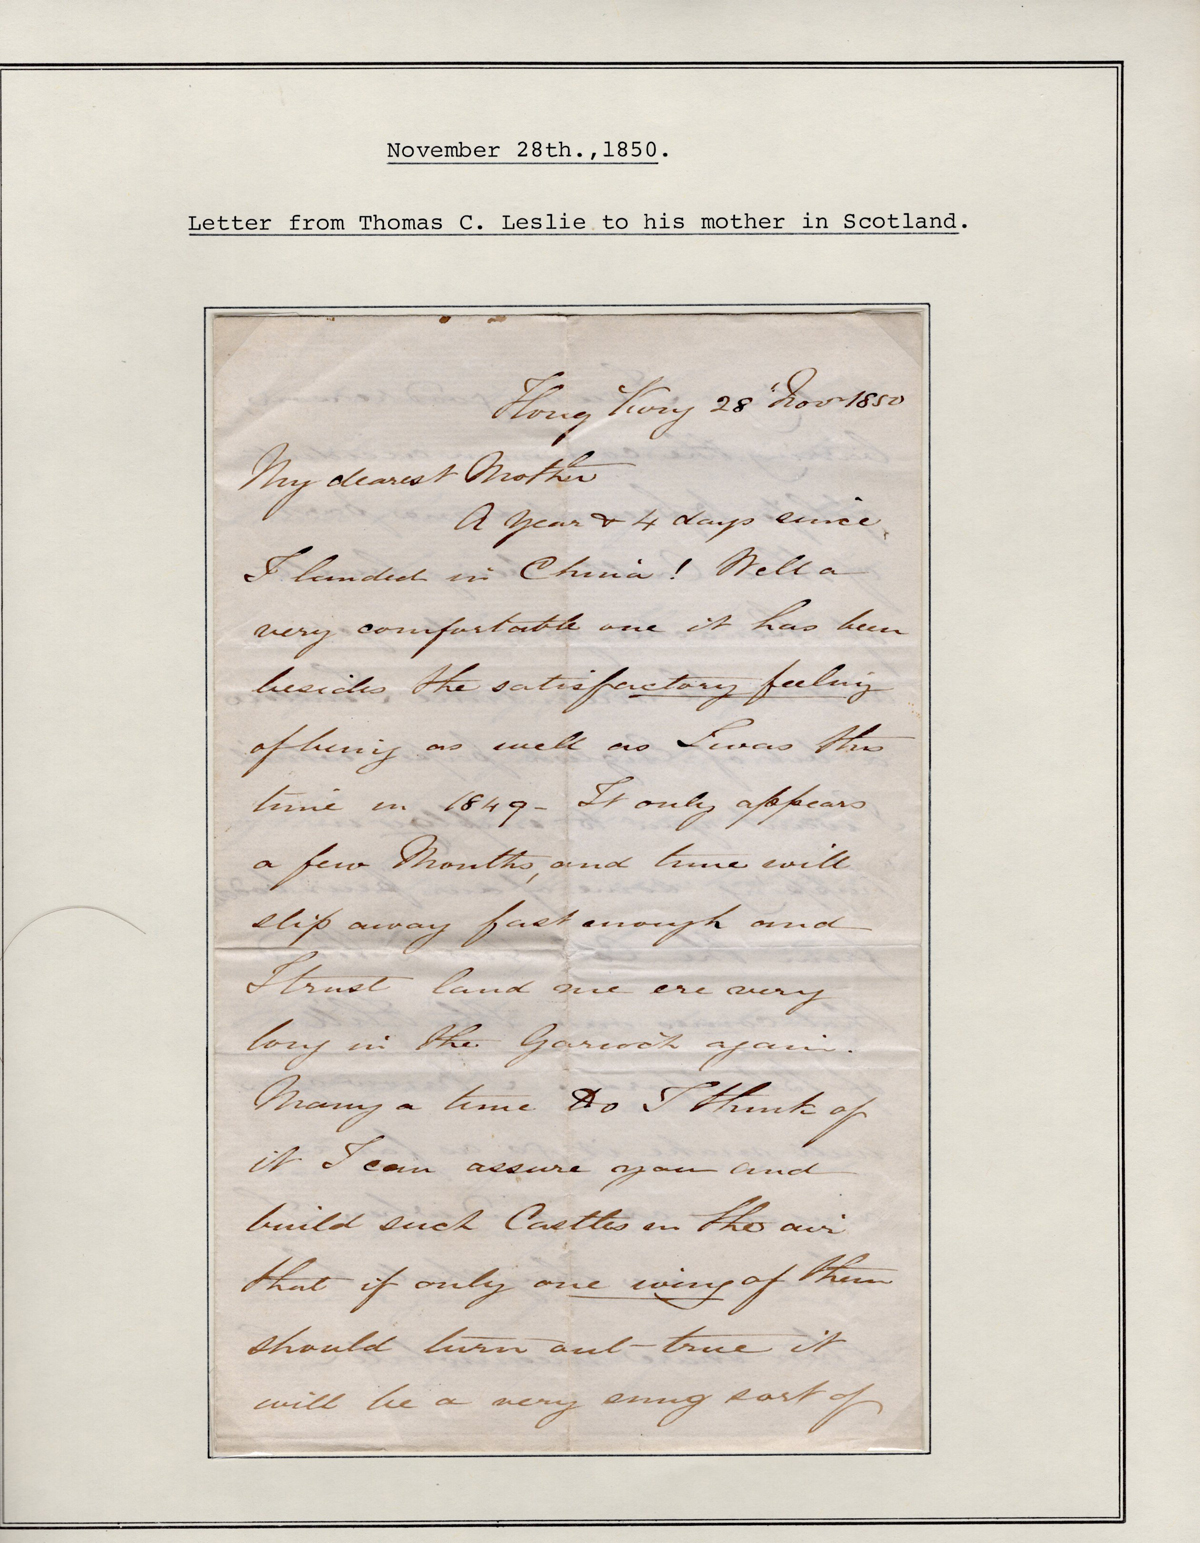 November 28th.,1850.
Letter from Thomas C. Leslie to his mother in Scotland.
Hong Kong 28 Novr 1850
My dearest Mother
A year & 4 days since
I landed in China! Well a
very comfortable one it has been
besides the satisfactory feeling
of being as well as I was this
time in 1849 - It only appears
a few Months, and time will
slip away fast enough and
I trust land me ere very
long in the Garioch again.
Many a time do I think of
it I can assure you and
build such Castles in the air
that if only one wing of them
should turn out true it
will be a very snug sort of